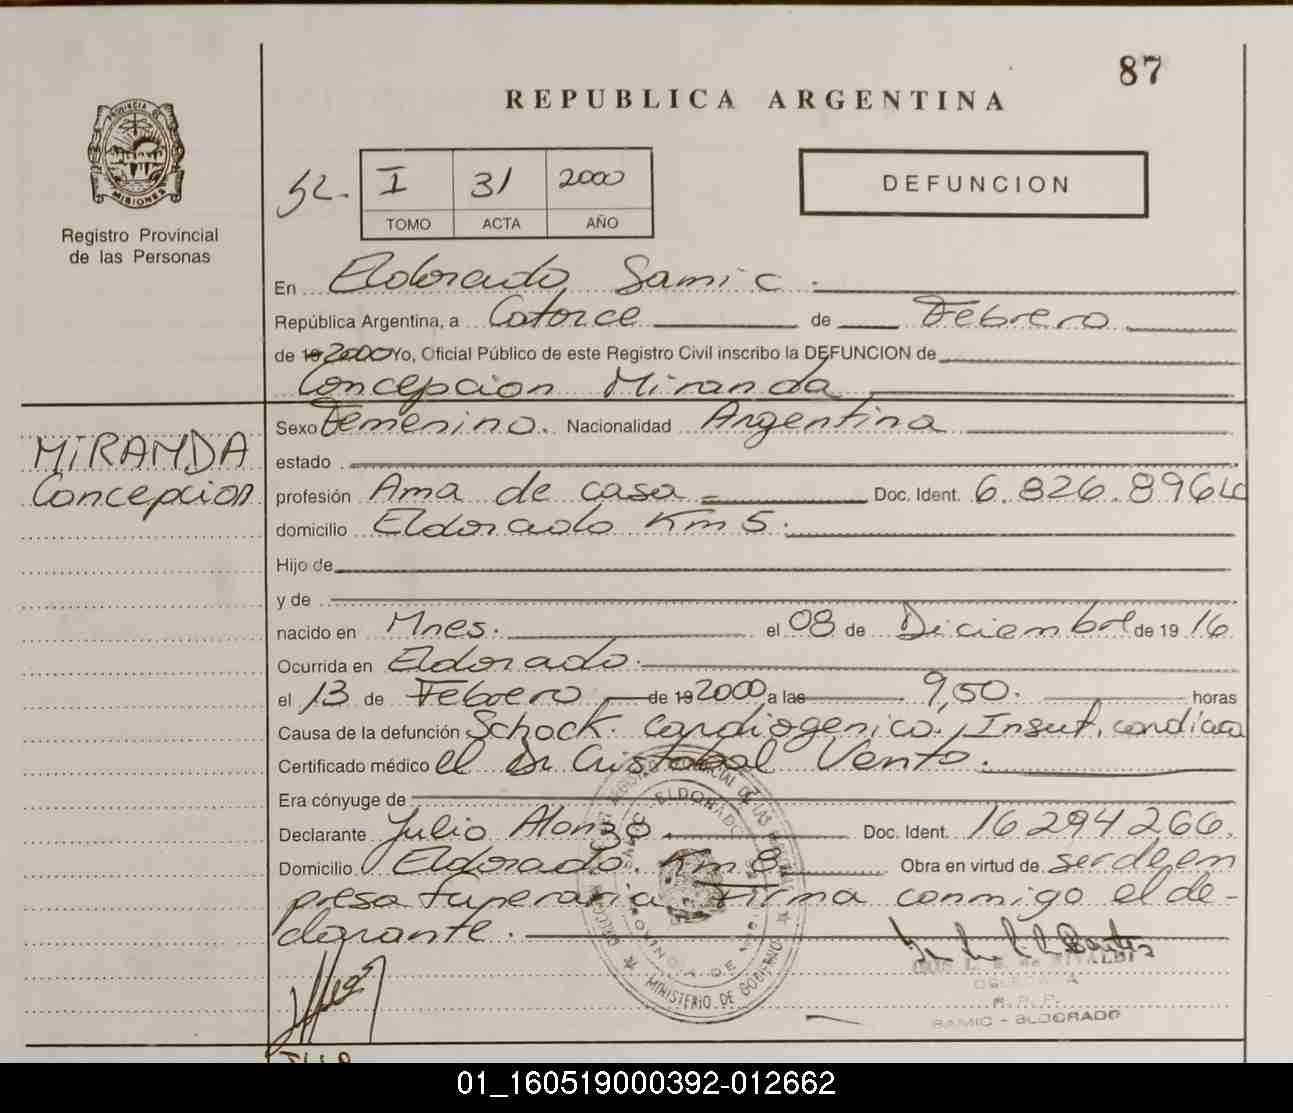 87
REPUBLICA ARGENTINA
PROVINCIA DE MISIONES
Registro Provincial
de las Personas
I 31 2000
TOMO ACTA AÑO
DEFUNCION
En Eldorado Samic.
República Argentina, a Catorce de Febrero
de 19 2000 Yo, Oficial Público de este Registro Civil inscribo la DEFUNCION de
Concepcion Miranda
MIRANDA
Concepcion
Sexo Femenino. Nacionalidad Argentina
estado
profesión Ama de casa Doc. Ident. 6.826.896
domicilio Eldorado Km 5.
Hijo de
y de
nacido en Mnes. el 08 de Diciembre de 19 16
Ocurrida en Eldorado.
el 13 de Febrero de 19 2000 a las 9,50. horas
Causa de la defunción Schock cardiogenico, Insuf. cardiaca
Certificado médico el Dr Cristobal Vento.
Era cónyuge de
Declarante Julio Alonzo. Doc. Ident. 16294266.
Domicilio Eldorado. Km 8 Obra en virtud de ser de em
presa funeraria Firma conmigo el de-
clarante.
ELDORADO
MINISTERIO DE GOBIERNO
DELEGADA
R. P. P.
SAMIC - ELDORADO
01_160519000392-012662